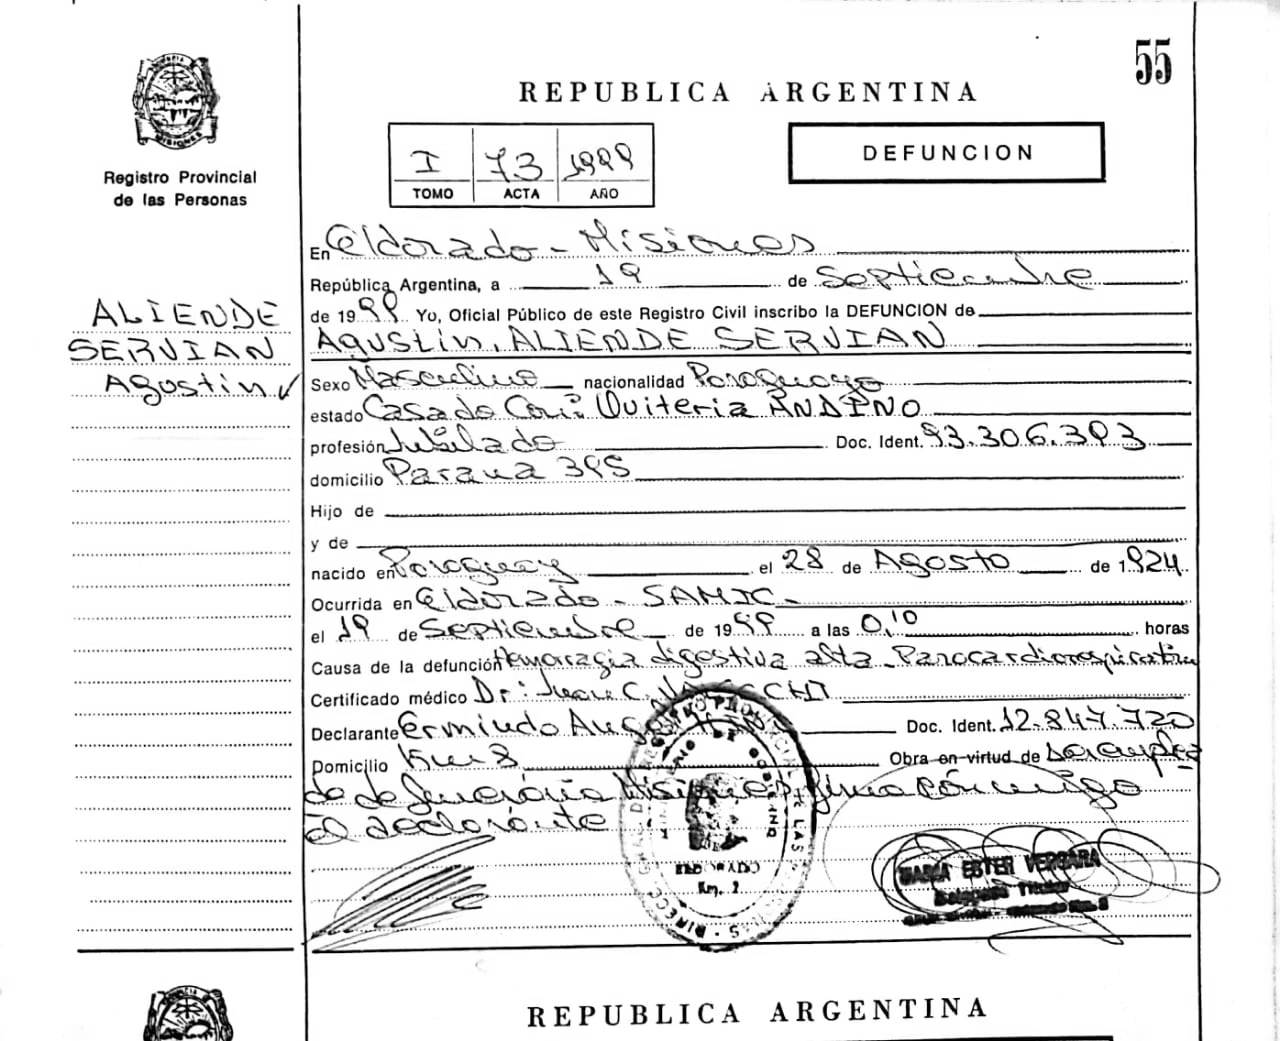 55
REPUBLICA ARGENTINA
MISIONES
Registro Provincial
de las Personas
I 73 1999
TOMO ACTA AÑO
DEFUNCION
En Eldorado - Misiones
República Argentina, a 19 de Septiembre
de 1999 Yo, Oficial Público de este Registro Civil inscribo la DEFUNCION de
ALIENDE
SERVIAN
Agustin
Agustin, ALIENDE SERVIAN
Sexo Masculino nacionalidad Paraguayo
estado Casado Con: Quiteria ANDINO
profesión Jubilado Doc. Ident. 93.306.393
domicilio Parana 395
Hijo de
y de
nacido en Paraguay el 28 de Agosto de 1924
Ocurrida en Eldorado - SAMIC -
el 19 de Septiembre de 1999 a las 0,10 horas
Causa de la defunción Hemorragia digestiva alta - Parocardiorespiratorio
Certificado médico Dr: Juan C.
Declarante Ermindo Doc. Ident. 12.847.720
Domicilio Km 3 Obra en virtud de
de defunción Misiones, firma conmigo
El declarante
ELDORADO
Km. 2
MARIA ESTER VERGARA
Delegada Titular
REPUBLICA ARGENTINA